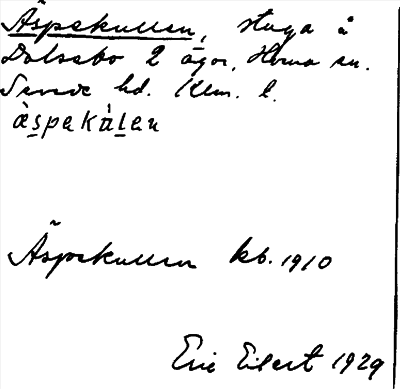 Äspekullen, stuga å
Dalsebo 2 ägor, Hova sn.
Sevede hd. Klm. l.
ä̀spekàlen
Äspekullen kb. 1910
Eric Eilert 1929